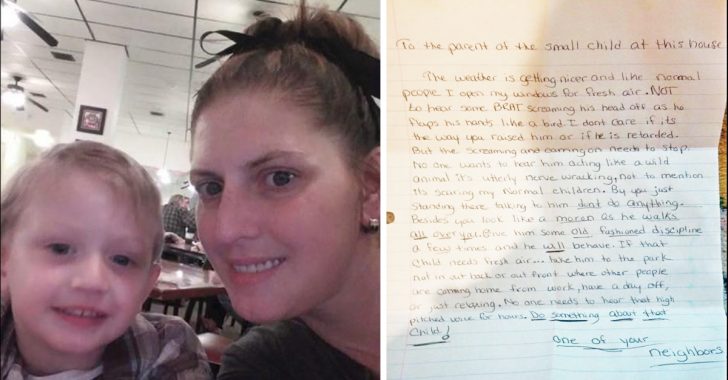 To the parent of the small child at this house
The weather is getting nicer and like normal
people I open my windows for fresh air. NOT
to hear some BRAT screaming his head off as he
flaps his hands like a bird. I dont care if its
the way you raised him or if he is retarded.
But the screaming and carrying on needs to stop.
No one wants to hear him acting like a wild
animal it's utterly nerve wracking, not to mention
its scaring my normal children. By you just
standing there talking to him dont do anything.
Besides you look like a moron as he walks
all over you. Give him some old fashioned discipline
a few times and he will behave. If that
child needs fresh air... take him to the park
not in out back or out front where other people
are coming home from work, have a day off,
or just relaxing. No one needs to hear that high
pitched voice for hours. Do something about that
Child!
one of your
neighbors